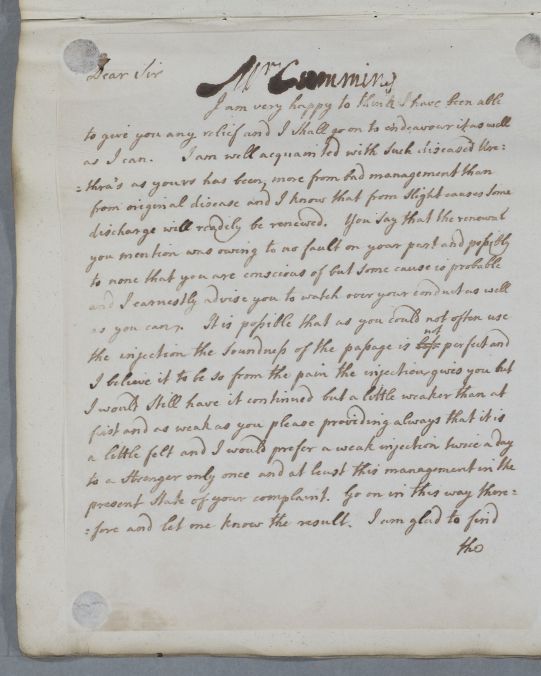 Dear Sir
Mr Cummins
I am very happy to think I have been able
to give you any relief and I shall go on to endeavour it as well
as I can. I am well acquainted with such diseased Ure=
=thra's as yours has been, more from bad management than
from original disease and I know that from slight causes some
discharge will readily be renewed. You say that the renewal
you mention was owing to no fault on your part and possibly
to none that you are conscious of but some cause is probable
and I earnestly advise you to watch over your conduct as well
as you can. It is possible that as you could not often use
the injection the soundness of the passage is not perfect and
I believe it to be so from the pain the injection gives you but
I would still have it continued but a little weaker than at
first and as weak as you please providing always that it is
a little felt and I would prefer a weak injection twice a day
to a stronger only once and at least this management in the
present state of your complaint. Go on in this way there=
=fore and let me know the result. I am glad to find
the